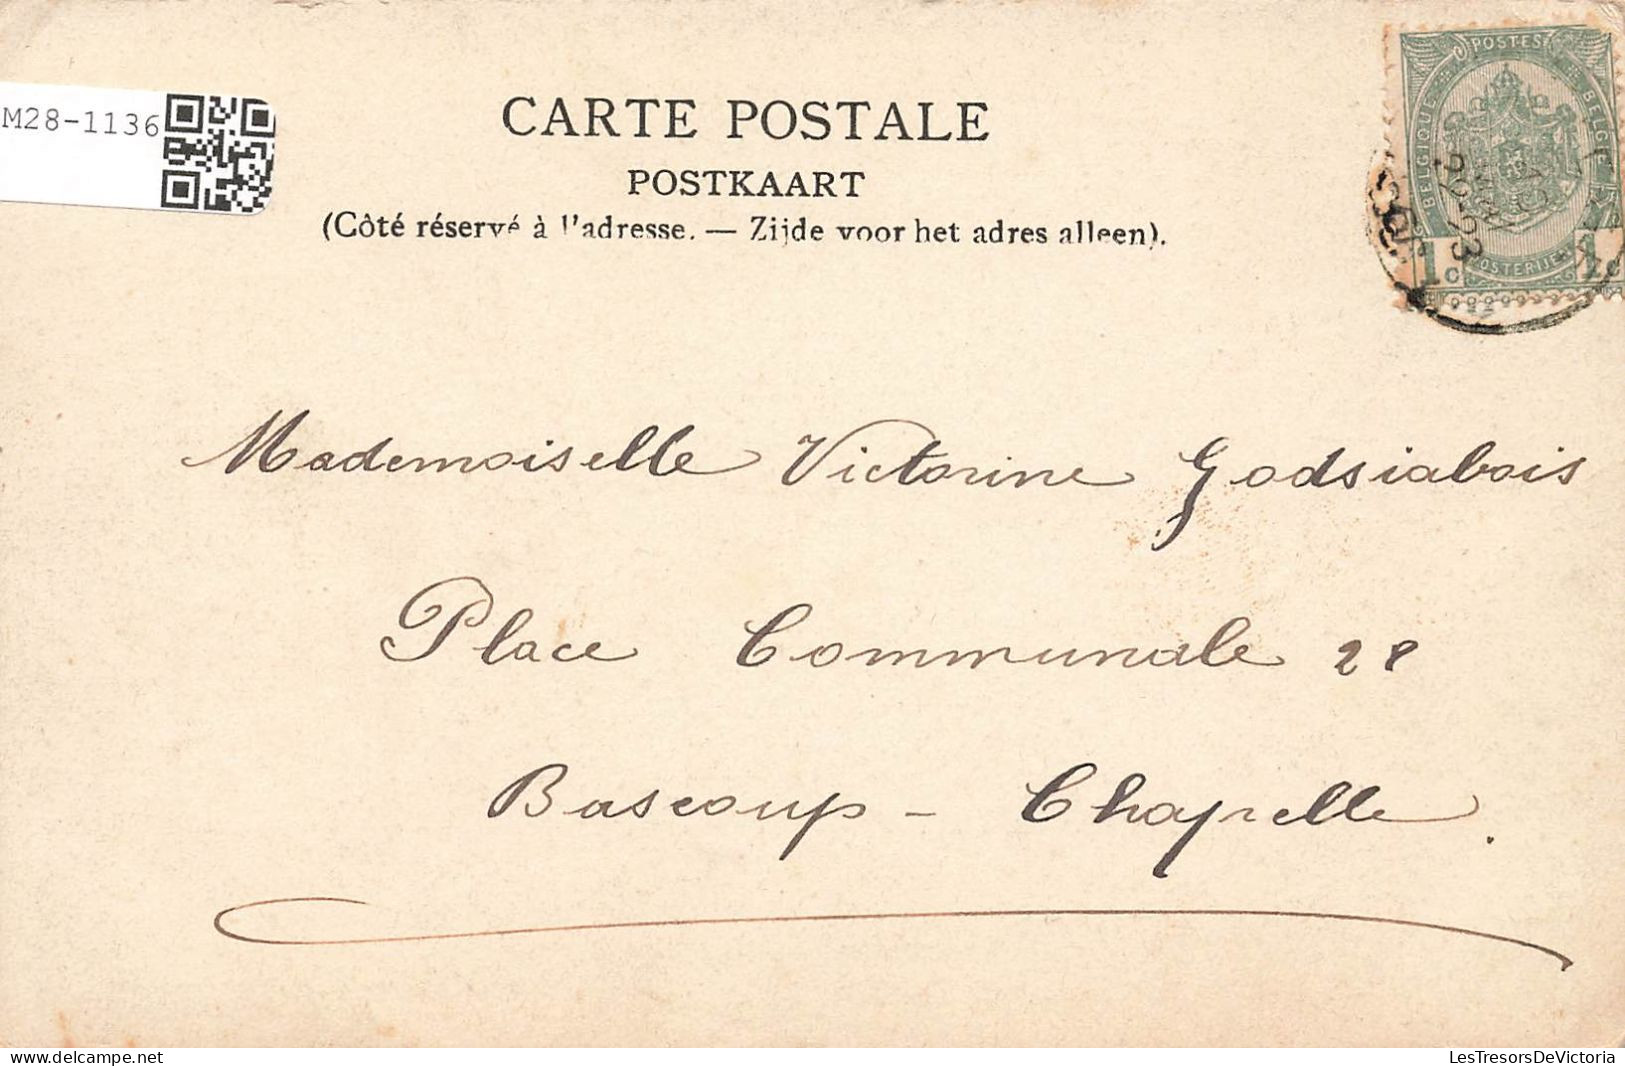 M28-1136
CARTE POSTALE
POSTKAART
(Côté réservé à l'adresse. — Zijde voor het adres alleen).
POSTES
BELGIQUE
BELGIE
POSTERIJEN
1c 1c
22-23
Mademoiselle Victorine Godsiabois
Place Communale 28
Bascoup - Chapelle.
delcampe.net
LesTresorsDeVictoria